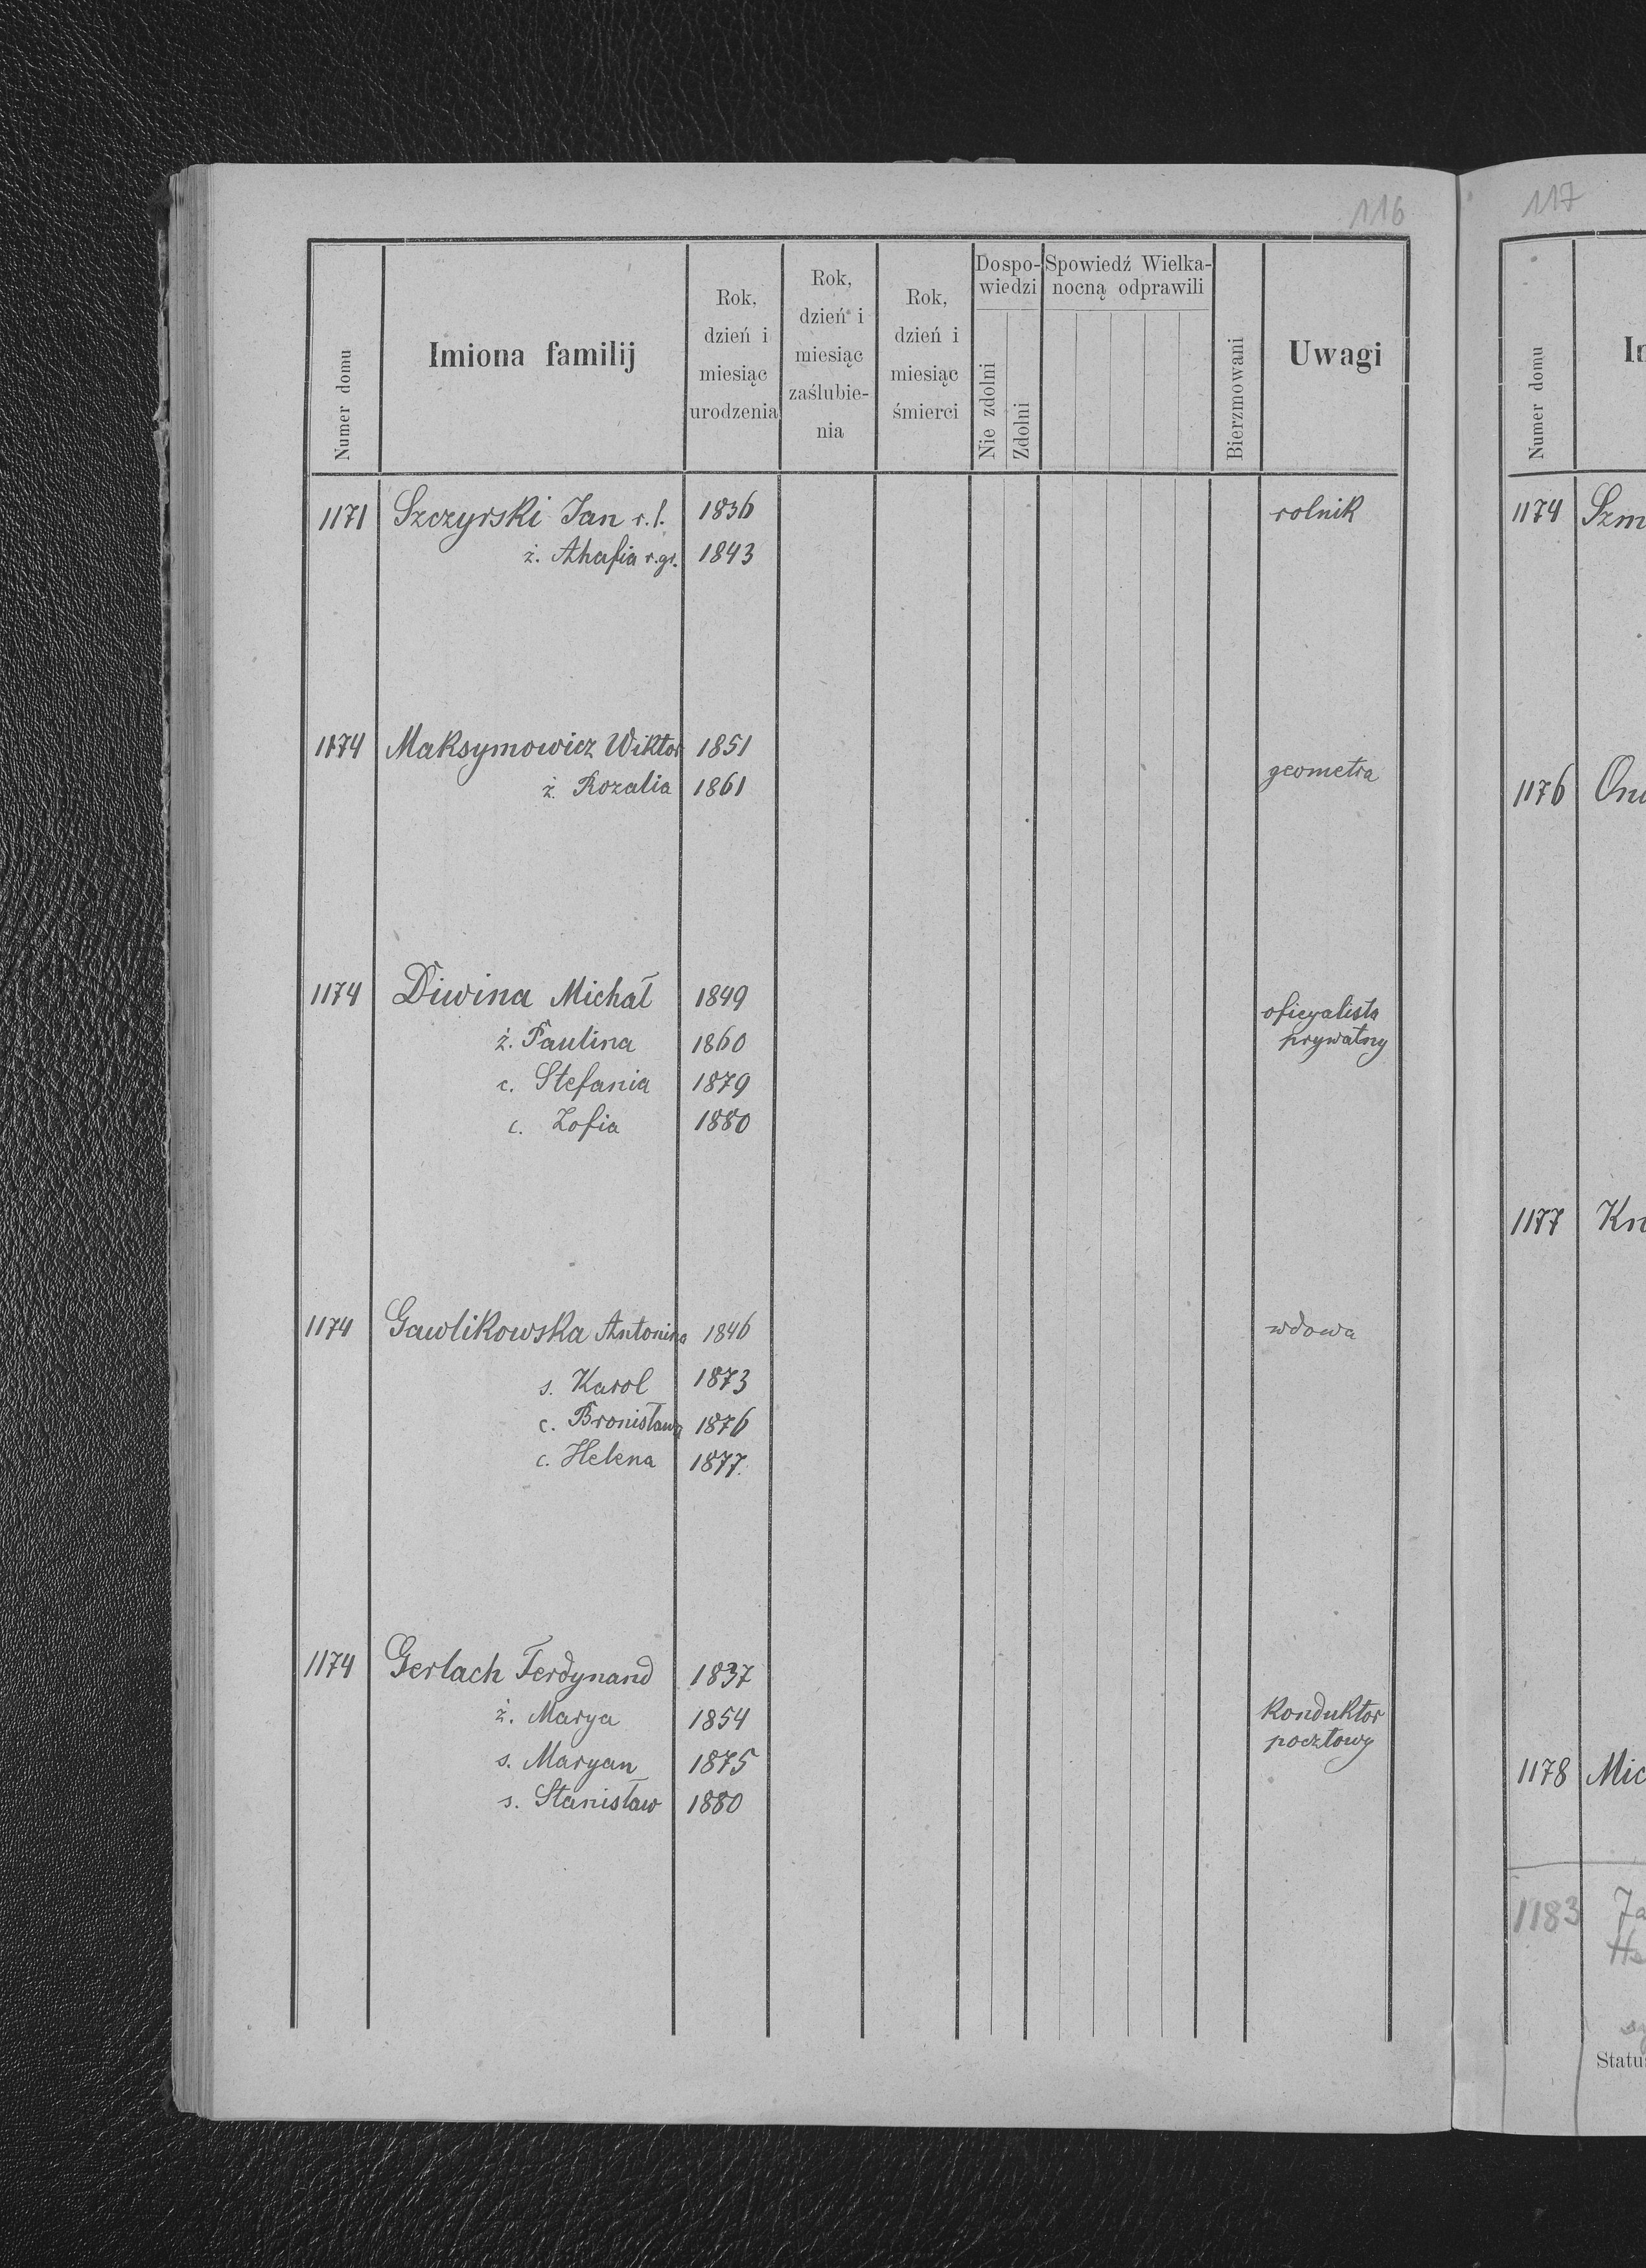 116
Numer domu
Imiona familij
Rok, dzień i miesiąc urodzenia
Rok, dzień i miesiąc zaślubienia
Rok, dzień i miesiąc śmierci
Dospowiedzi
Nie zdolni
Zdolni
Spowiedź Wielkanocną odprawili
Bierzmowani
Uwagi
1171 Szczyrski Jan r. l. 1836 rolnik
ż. Ahafia r. gr. 1843
1174 Maksymowicz Wiktor 1851 geometra
ż. Rozalia 1861
1174 Diwina Michał 1849 oficyalista
ż. Paulina 1860 prywatny
c. Stefania 1879
c. Zofia 1880
1174 Gawlikowska Antonina 1846 wdowa
s. Karol 1873
c. Bronisława 1876
c. Helena 1877.
1174 Gerlach Ferdynand 1837
ż. Marya 1854 Konduktor
s. Maryan 1875 pocztowy
s. Stanisław 1880
117
Numer domu
1174 Szm
1176
1177 Kn
1178 Mic
1183 Ja
He
Statu